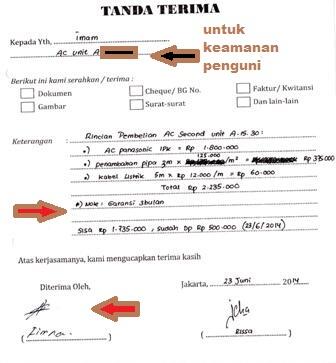 TANDA TERIMA
Kepada Yth, imam
AC unit A
untuk
keamanan
penguni
Berikut ini kami serahkan / terima :
Dokumen Cheque/ BG No. Faktur/ Kwitansi
Gambar Surat-surat Dan lain-lain
Keterangan : Rincian Pembelian AC Second unit A.15.30:
•) AC panasonic 1PK = Rp 1.800.000
125.000
•) penambahan pipa 3m x /m² = Rp 375.000
•) Kabel listrik 5m x Rp 12.000/m = Rp 60.000
Total Rp 2.235.000
*) Note : Garansi 3bulan
Sisa Rp 1.735.000, sudah DP Rp 500.000 (23/6/2014)
Atas kerjasamanya, kami mengucapkan terima kasih
Diterima Oleh, Jakarta, 23 Juni 2014